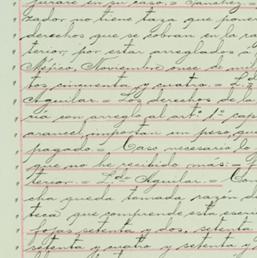 jurare en su caso.= Sanchez.=
zador no tiene taza que poner
derechos que se cobran en la ra
terior, por estar arreglados á
México, Noviembre once de mil
tos cincuenta y cuatro.= Lᵈ
Aguilar.= Los derechos de la
ria con arreglo al artº 1º cap
arancel, importan un peso, que
pagado.= Caso necesario lo
que no he recibido más.=
terior.= Lᵈᵒ Aguilar.= Con
cha queda tomada razón de
teca que comprende esta escri
fojas setenta y dos, setenta
setenta y cuatro y setenta y